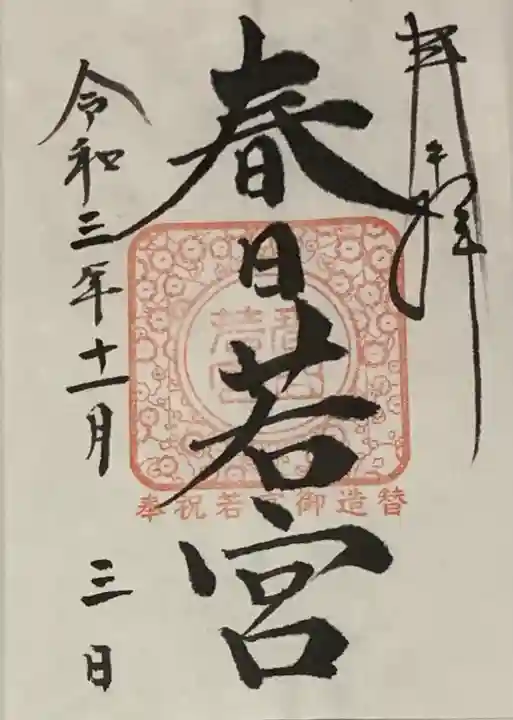 奉拝
春日若宮
奉祝若宮御造替
令和三年十一月三日